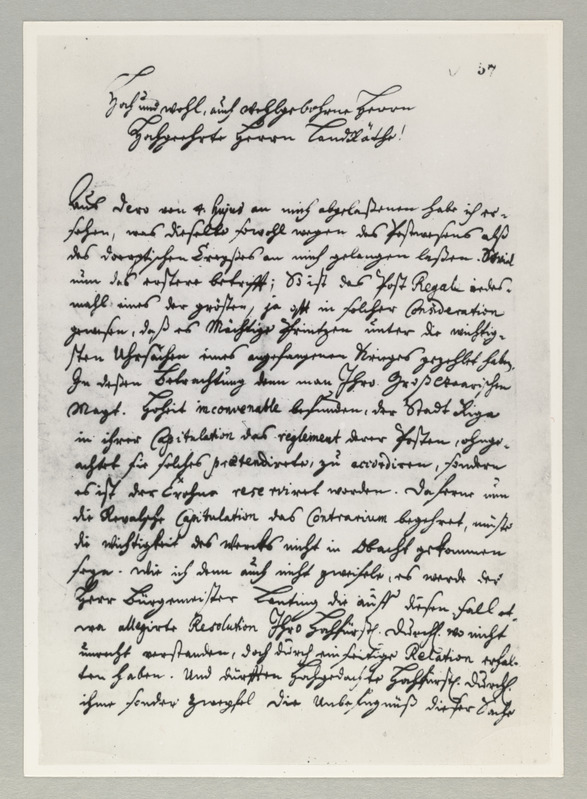 57
Hoch und wohl, auch Wohlgebohrne Herrn
Hochgeehrte Herrn Landräthe!
Aus Dero von 4. hujus an mich abgelaßenen habe ich er-
sehen, was dieselbe sowohl wegen des Postwesens alß
des doerptischen Creyses an mich gelangen laßen. Soviel
nun das erstere betrifft; So ist das Post Regale jedes-
mahl eines der grösten, ja oft in solcher Consideration
gewesen, daß es Mächtige Printzen unter die wichtig-
sten Uhrsachen eines angefangenen Krieges gezehlet haben.
In deßen Betrachtung denn man Ihro GroßCzaarischen
Mayt. Hoheit inconvenable befunden, der Stadt Riga
in ihrer Capitulation das reglement derer Posten, ohnge-
achtet sie solches prætendirete, zu accordiren, sondern
es ist der Crohne reserviret worden. Daferne nun
die Revalsche Capitulation das Contrarium begehret, müste
die Wichtigkeit des Wercks nicht in Obacht gekommen
seyn. Wie ich denn auch nicht zweifele, es werde der
Herr Bürgemeister Lanting die auff diesen Fall et-
wa allegirte Resolution Ihro Hochfürstl. Durchl. wo nicht
unrecht verstanden, doch durch einseitige Relation erhal-
ten haben. Und dürfften Hochgedachte Hochfürstl. Durchl.
ihme sonder Zweyfel die Unbefugnüß dieser Sache